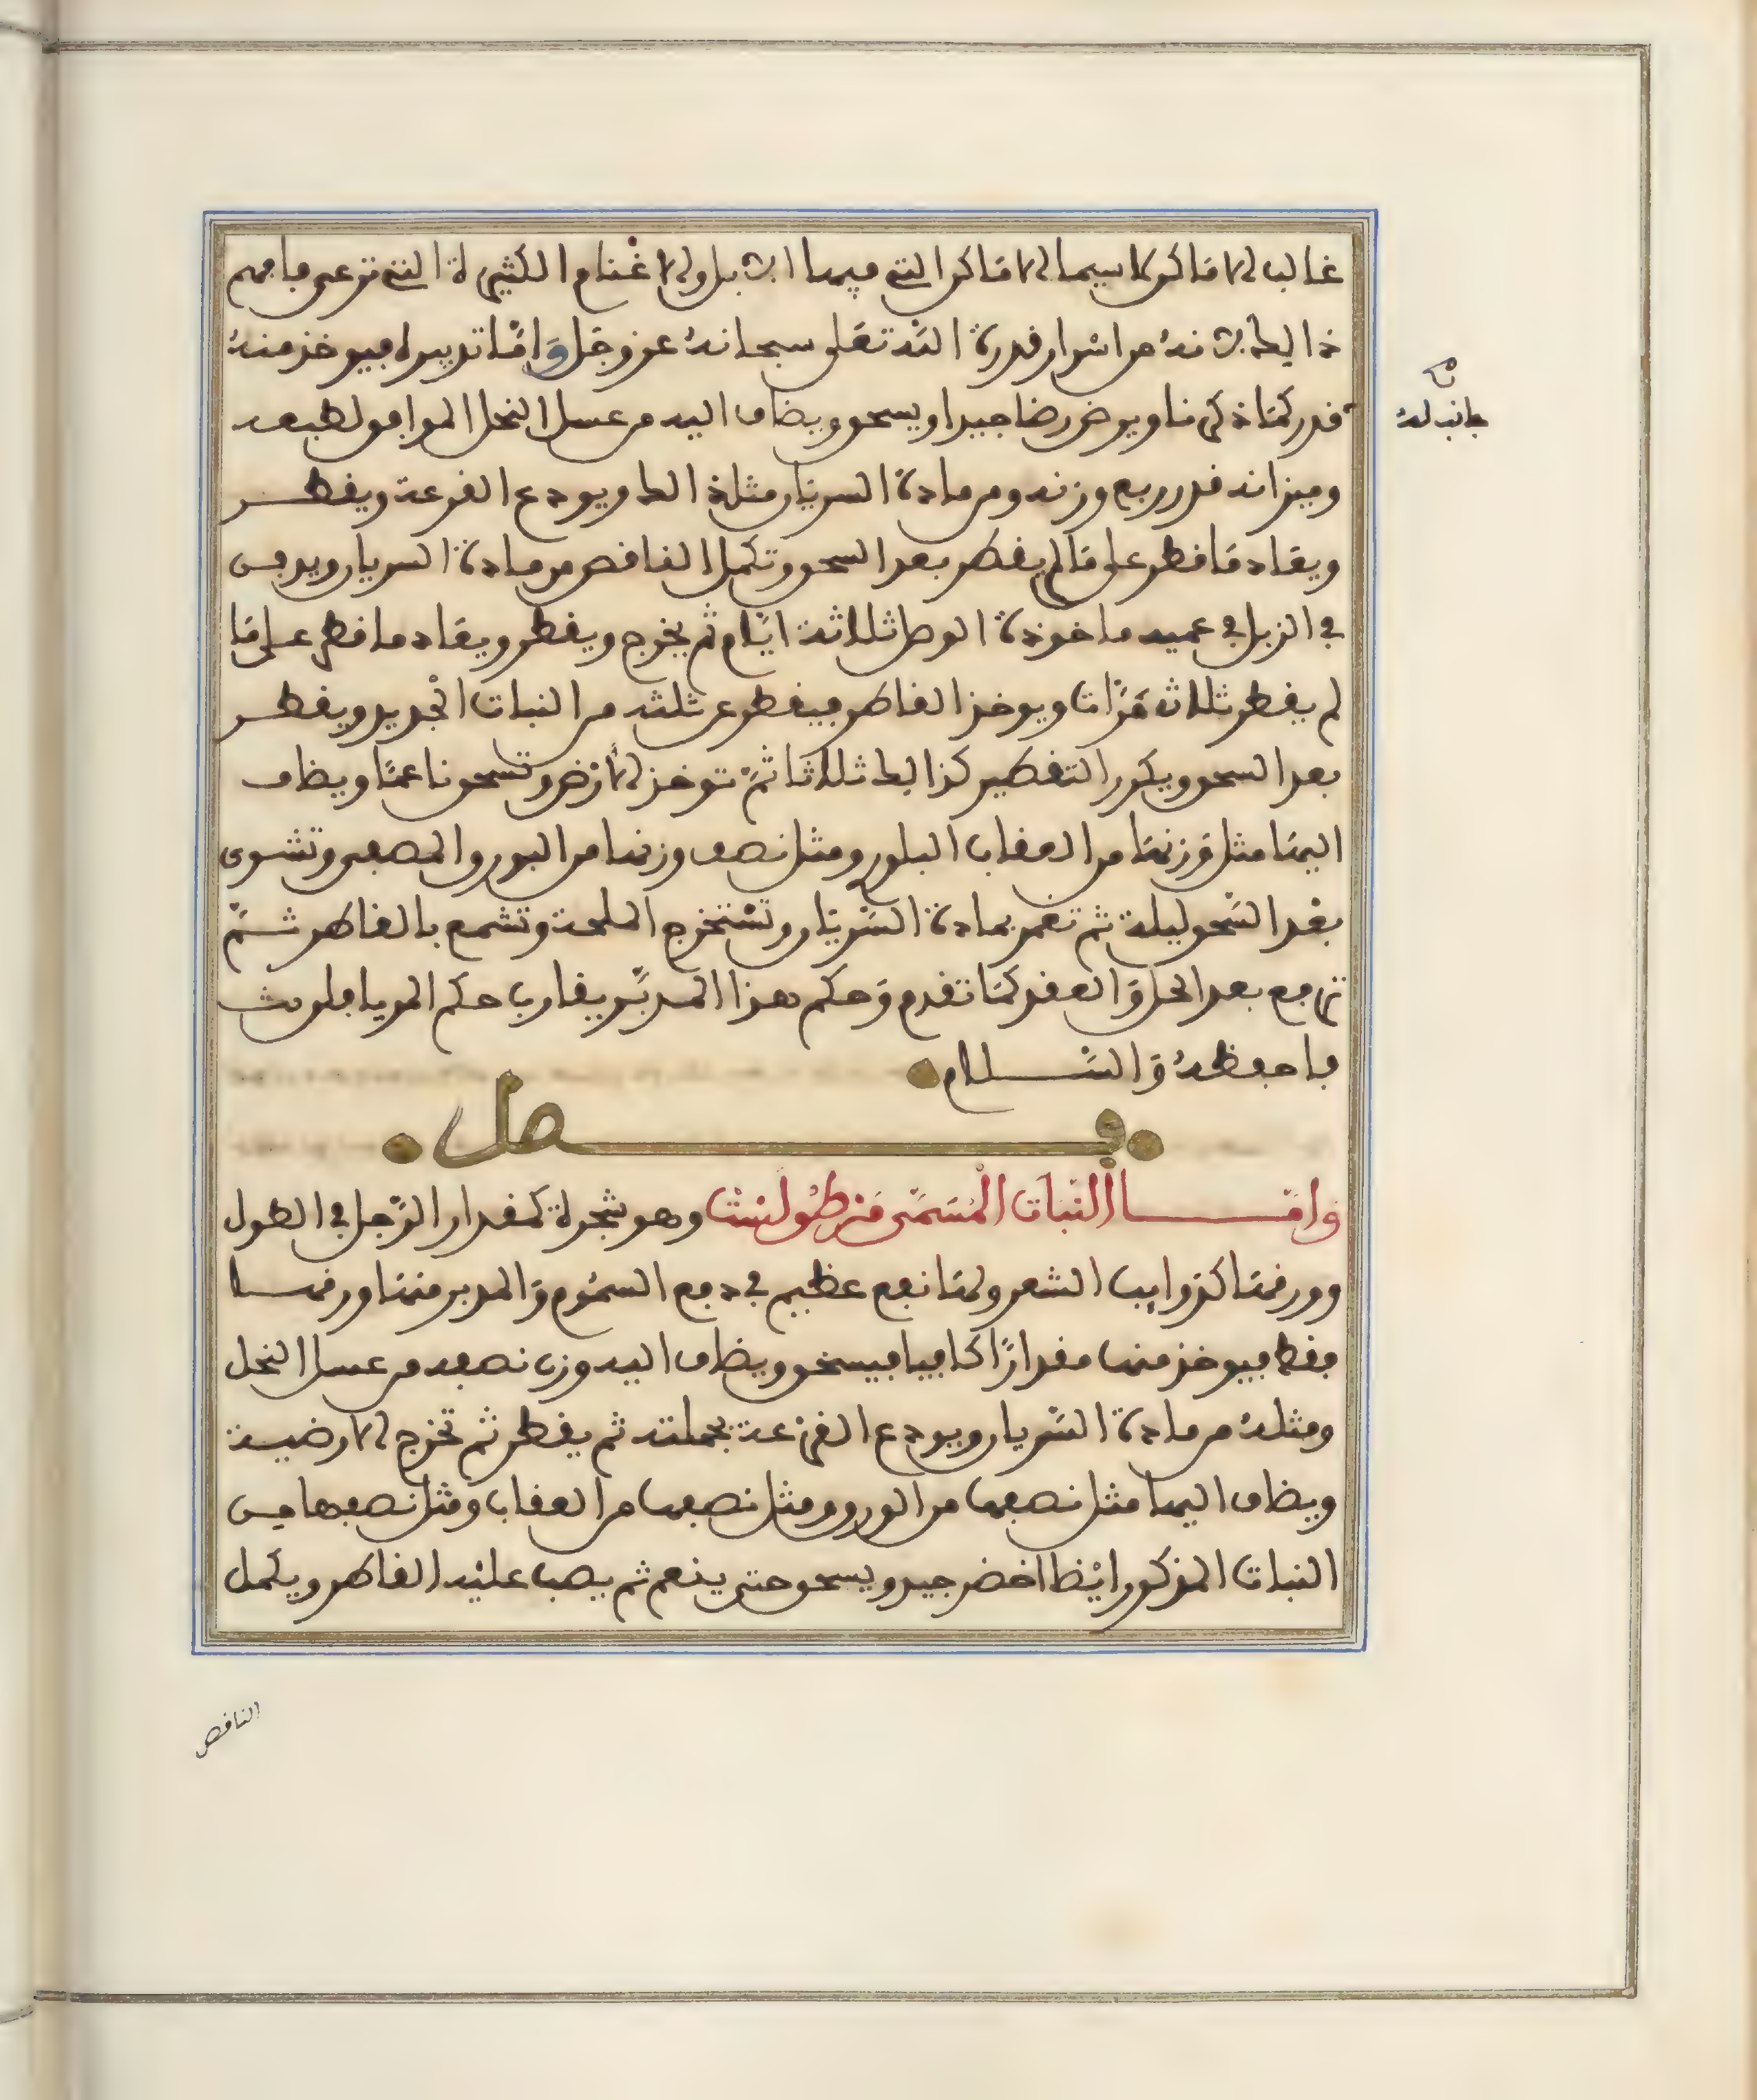 غالب الاماكن لا سيما الاماكن التي فيها الابل والاغنام الكثيرة التي ترعى فافهم
ذالك لانه من اسرار قدرة الله تعلى سبحانه عز وجل وَامّا تدبيره فيوخذ منه
قدر كما ذكرنا ويرض رضا جيدا ويسحق ويضاف اليه من عسل النحل الموافق لطبعه
وميزانه قدر ربع وزنه ومن مادة السريار مثل ذالك ويودع القرعة ويقطر
ويعاد ما قطر على ما لم يقطر بعد السحق وتكمل الناقص من مادة السريار ويدفن
في الزبل في عميه ماخوذة الوصل ثلاثة ايام ثم يخرج ويقطر ويعاد ما قطر على ما
لم يقطر ثلاث مرّات ويوخذ القاطر فيقطر عن ثلثه من النبات الجديد ويقطر
بعد السحق ويكرر التقطير كذالك ثلاثا ثمّ توخذ الارض وتسحق ناعمًا ويضاف
اليها مثل وزنها من العقاب البلور ومثل نصف وزنها من البورق المصفى وتشوى
بعد السّحق ليلة ثم تغمر بمادة السّريار وتسْتخرج الملحة وتشمع بالقاطر ثمّ
ترفع بعد الحل وَالعقد كما تقدم وَحكم هذا المدبّر يقارب حكم المريافلوث
فاحفظه وَالسّلام
فصل
وامّا النّبات المُسَمّى قنطُولنث وهو شجرة كمقدار الرّجل في الطول
وورقها كذوايب الشعر ولها نفع عظيم في دفع السمُوم وَالمدبر منها ورقها
فقط فيوخذ منها مقدارًا كافيا فيسحق ويضاف اليه وزن نصفه من عسل النحل
ومثله من مادة السّريار ويودع القرعة بجملته ثم يقطر ثم تخرج الارضية
ويضاف اليها مثل نصفها من البورق ومثل نصفها من العقاب ومثل نصفها من
النبات المذكور ايْظا اخضر جيد ويسحق حتى ينعم ثم يصب عليْه القاطر ويكمل
الناقص